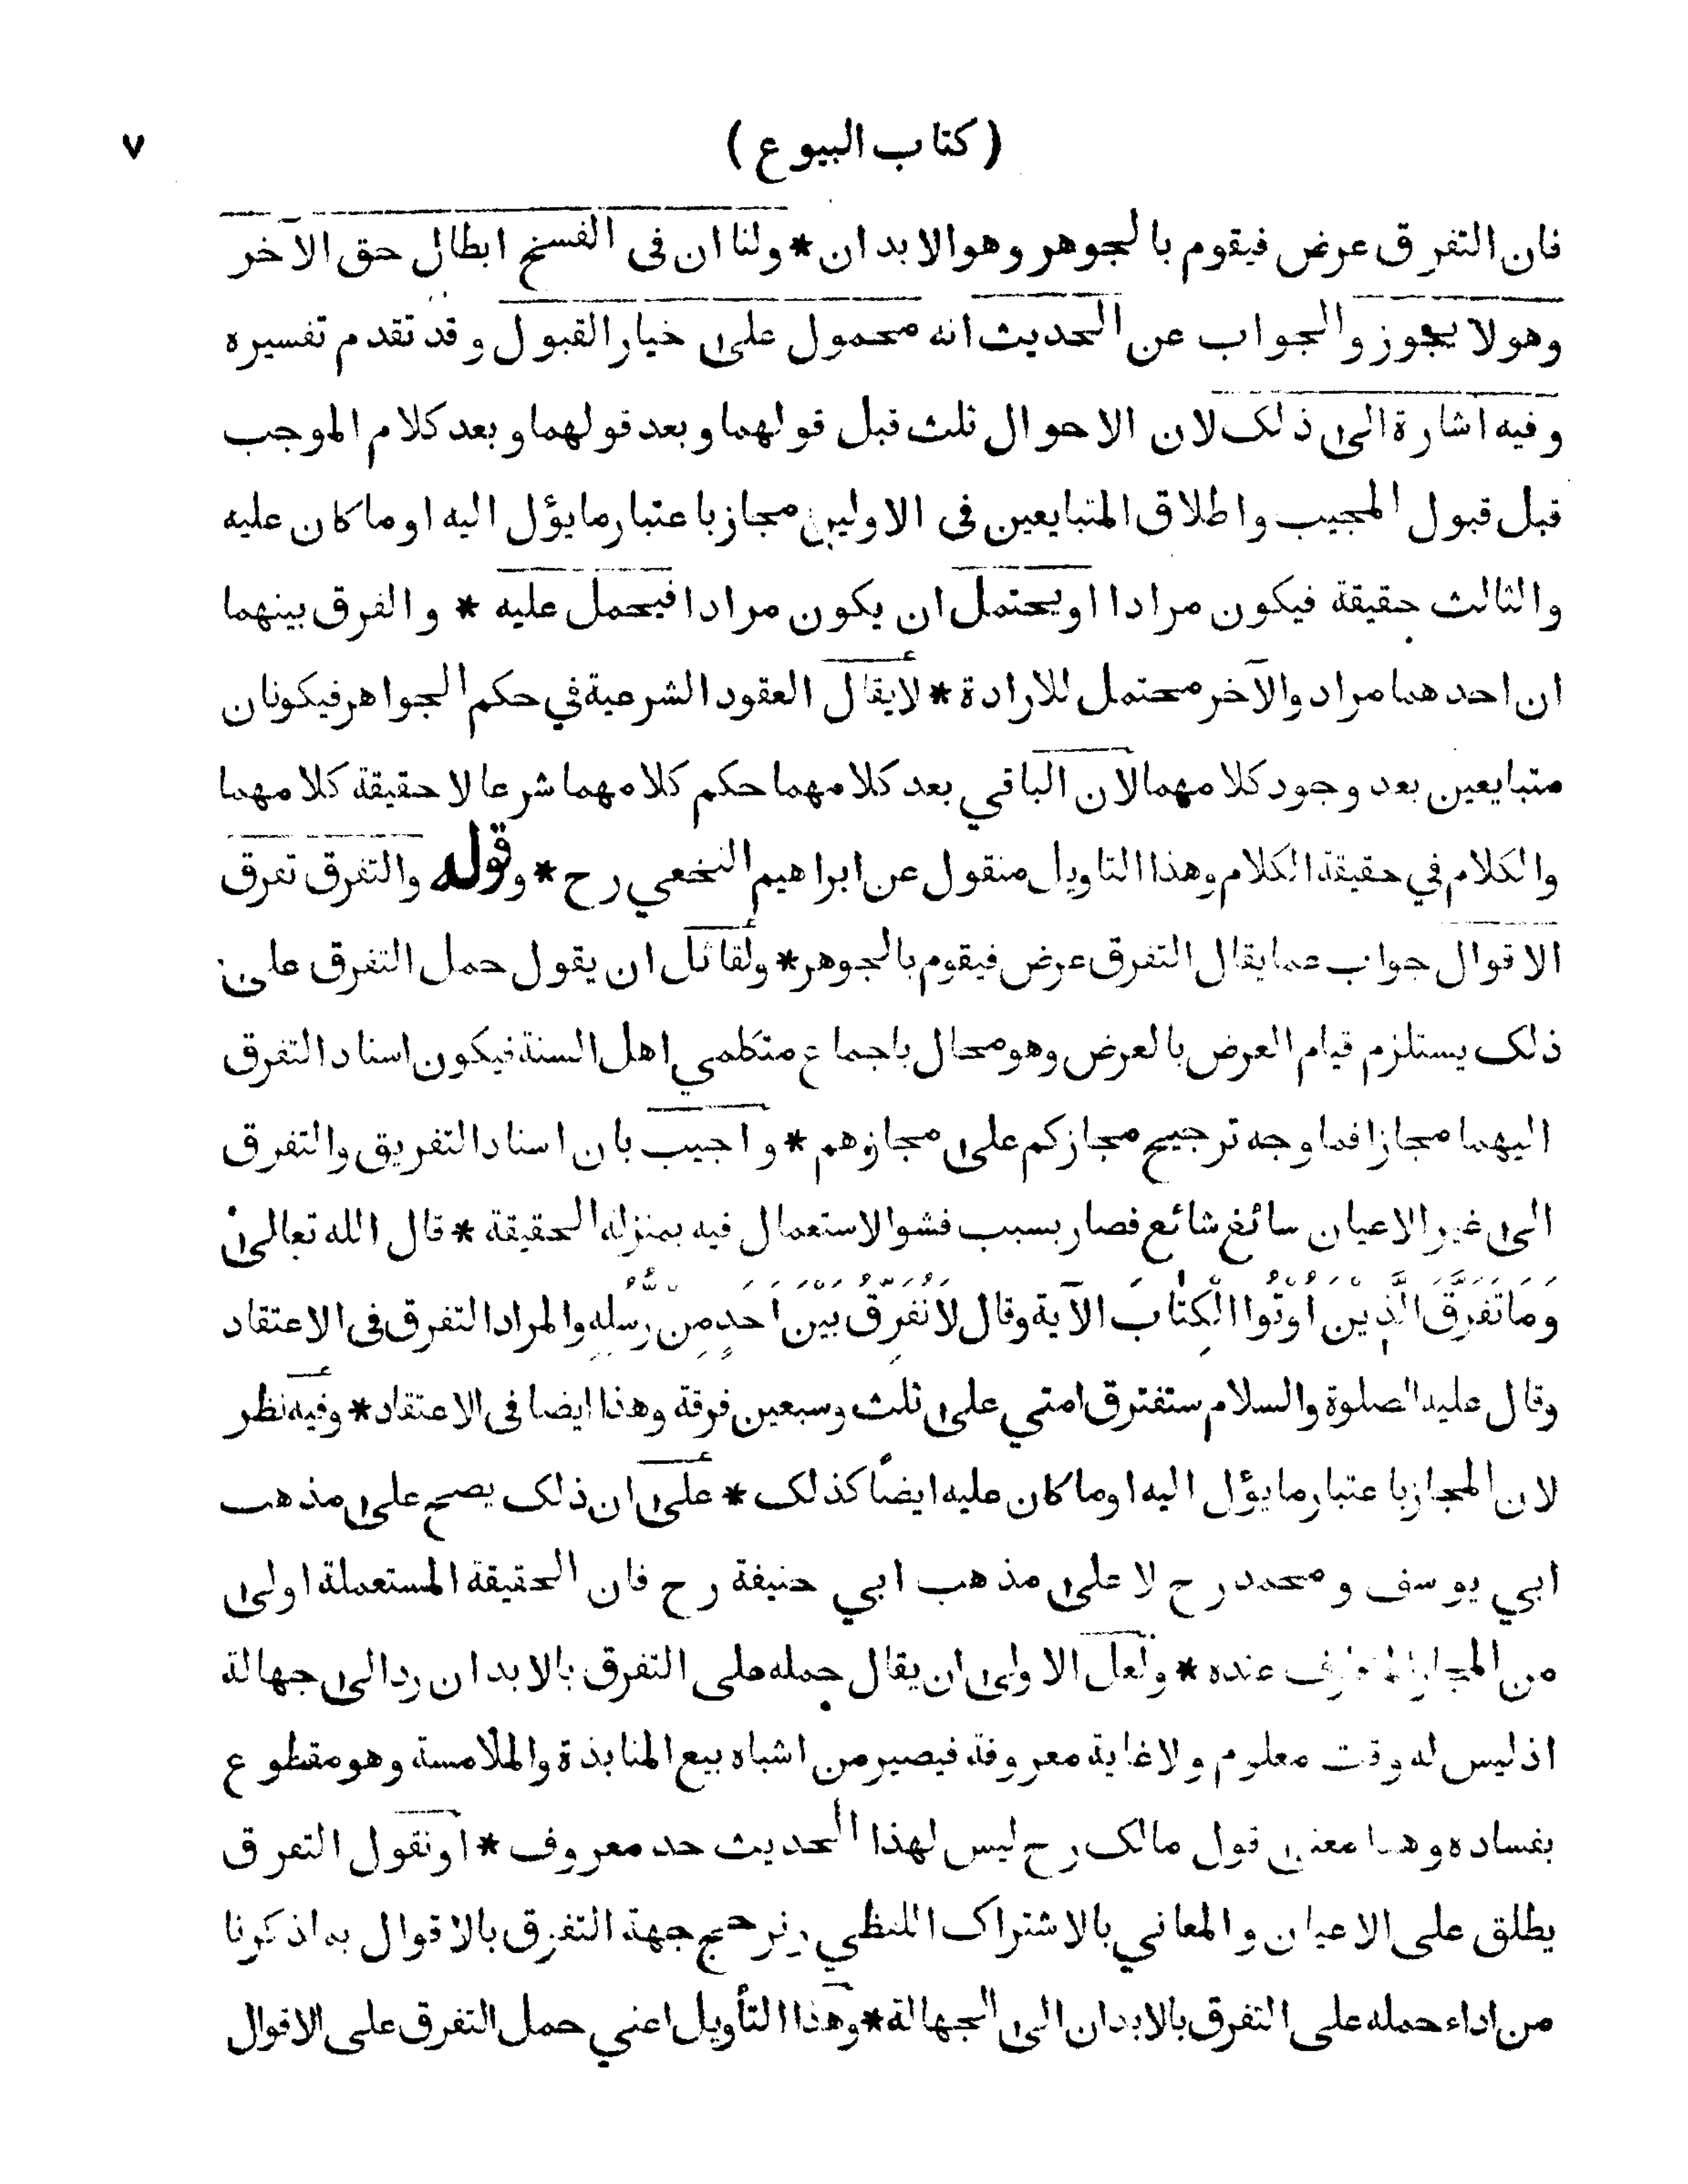 ( كتاب البيوع )
٧
فان التفرق عرض فيقوم بالجوهر وهو الابدان * ولنا ان في الفسخ ابطال حق الآخر
وهو لا يجوز والجواب عن الحديث انه محمول على خيار القبول وقد تقدم تفسيره
وفيه اشارة الى ذلك لان الاحوال ثلث قبل قولهما وبعد قولهما وبعد كلام الموجب
قبل قبول المجيب واطلاق المتبايعين في الاولين مجاز باعتبار ما يؤل اليه او ما كان عليه
والثالث حقيقة فيكون مرادا او يحتمل ان يكون مرادا فيحمل عليه * والفرق بينهما
ان احدهما مراد والآخر محتمل للارادة * لا يقال العقود الشرعية في حكم الجواهر فيكونان
متبايعين بعد وجود كلامهما لان الباقي بعد كلامهما حكم كلامهما شرعا لا حقيقة كلامهما
والكلام في حقيقة الكلام وهذا التاويل منقول عن ابراهيم النخعي رح * وقوله والتفرق تفرق
الاقوال جواب عما يقال التفرق عرض فيقوم بالجوهر * ولقائل ان يقول حمل التفرق على
ذلك يستلزم قيام العرض بالعرض وهو محال باجماع متكلمي اهل السنة فيكون اسناد التفرق
اليهما مجازا فما وجه ترجيح مجازكم على مجازهم * واجيب بان اسناد التفريق والتفرق
الى غير الاعيان سائغ شائع فصار بسبب فشو الاستعمال فيه بمنزلة الحقيقة * قال الله تعالى
وَمَا تَفَرَّقَ الَّذِيْنَ اُوْتُوا الْكِتٰابَ الآية وقال لَا نُفَرِّقُ بَيْنَ اَحَدٍ مِنْ رُّسُلِهِ والمراد التفرق في الاعتقاد
وقال عليه الصلوة والسلام ستفترق امتي على ثلث وسبعين فرقة وهذا ايضا في الاعتقاد * وفيه نظر
لان المجاز باعتبار ما يؤل اليه او ما كان عليه ايضًا كذلك * على ان ذلك يصح على مذهب
ابي يوسف ومحمد رح لا على مذهب ابي حنيفة رح فان الحقيقة المستعملة اولى
من المجاز المتعارف عنده * ولعل الاولى ان يقال حمله على التفرق بالابدان رد الى جهالة
اذ ليس له وقت معلوم ولا غاية معروفة فيصير من اشباه بيع المنابذة والملامسة وهو مقطوع
بفساده وهذا معنى قول مالك رح ليس لهذا الحديث حد معروف * او نقول التفرق
يطلق على الاعيان والمعاني بالاشتراك اللفظي وترجح جهة التفرق بالاقوال بما ذكرنا
من اداء حمله على التفرق بالابدان الى الجهالة * وهذا التأويل اعني حمل التفرق على الاقوال